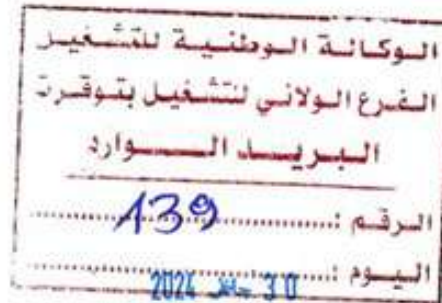 الوكالة الوطنية للتشغيل
الفرع الولائي للتشغيل بتوقرت
البريد الـــوارد
الرقم : 139
اليوم : 30 جانفي 2024